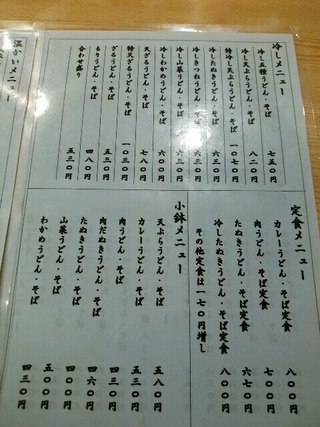 冷しメニュー
冷し五種うどん・そば 七五〇円
冷し天ぷらうどん・そば 八二〇円
特冷し天ぷらうどん・そば 一〇七〇円
冷したぬきうどん・そば 六三〇円
冷しきつねうどん・そば 六三〇円
冷し山菜うどん・そば 六三〇円
冷しわかめうどん・そば 六〇〇円
天ざるうどん・そば 七八〇円
特天ざるうどん・そば 一〇三〇円
ざるうどん・そば 五三〇円
もりうどん・そば 四八〇円
合わせ盛り 五三〇円
定食メニュー
カレーうどん・そば定食 八〇〇円
肉うどん・そば定食 七〇〇円
たぬきうどん・そば定食 六七〇円
冷したぬきうどん・そば定食 八〇〇円
その他定食は一七〇円増し
小鉢メニュー
天ぷらうどん・そば 五八〇円
カレーうどん・そば 五三〇円
肉うどん・そば 四三〇円
肉だぬきうどん・そば 四六〇円
たぬきうどん・そば 四〇〇円
山菜うどん・そば 五〇〇円
わかめうどん・そば 四三〇円
温かいメニュー